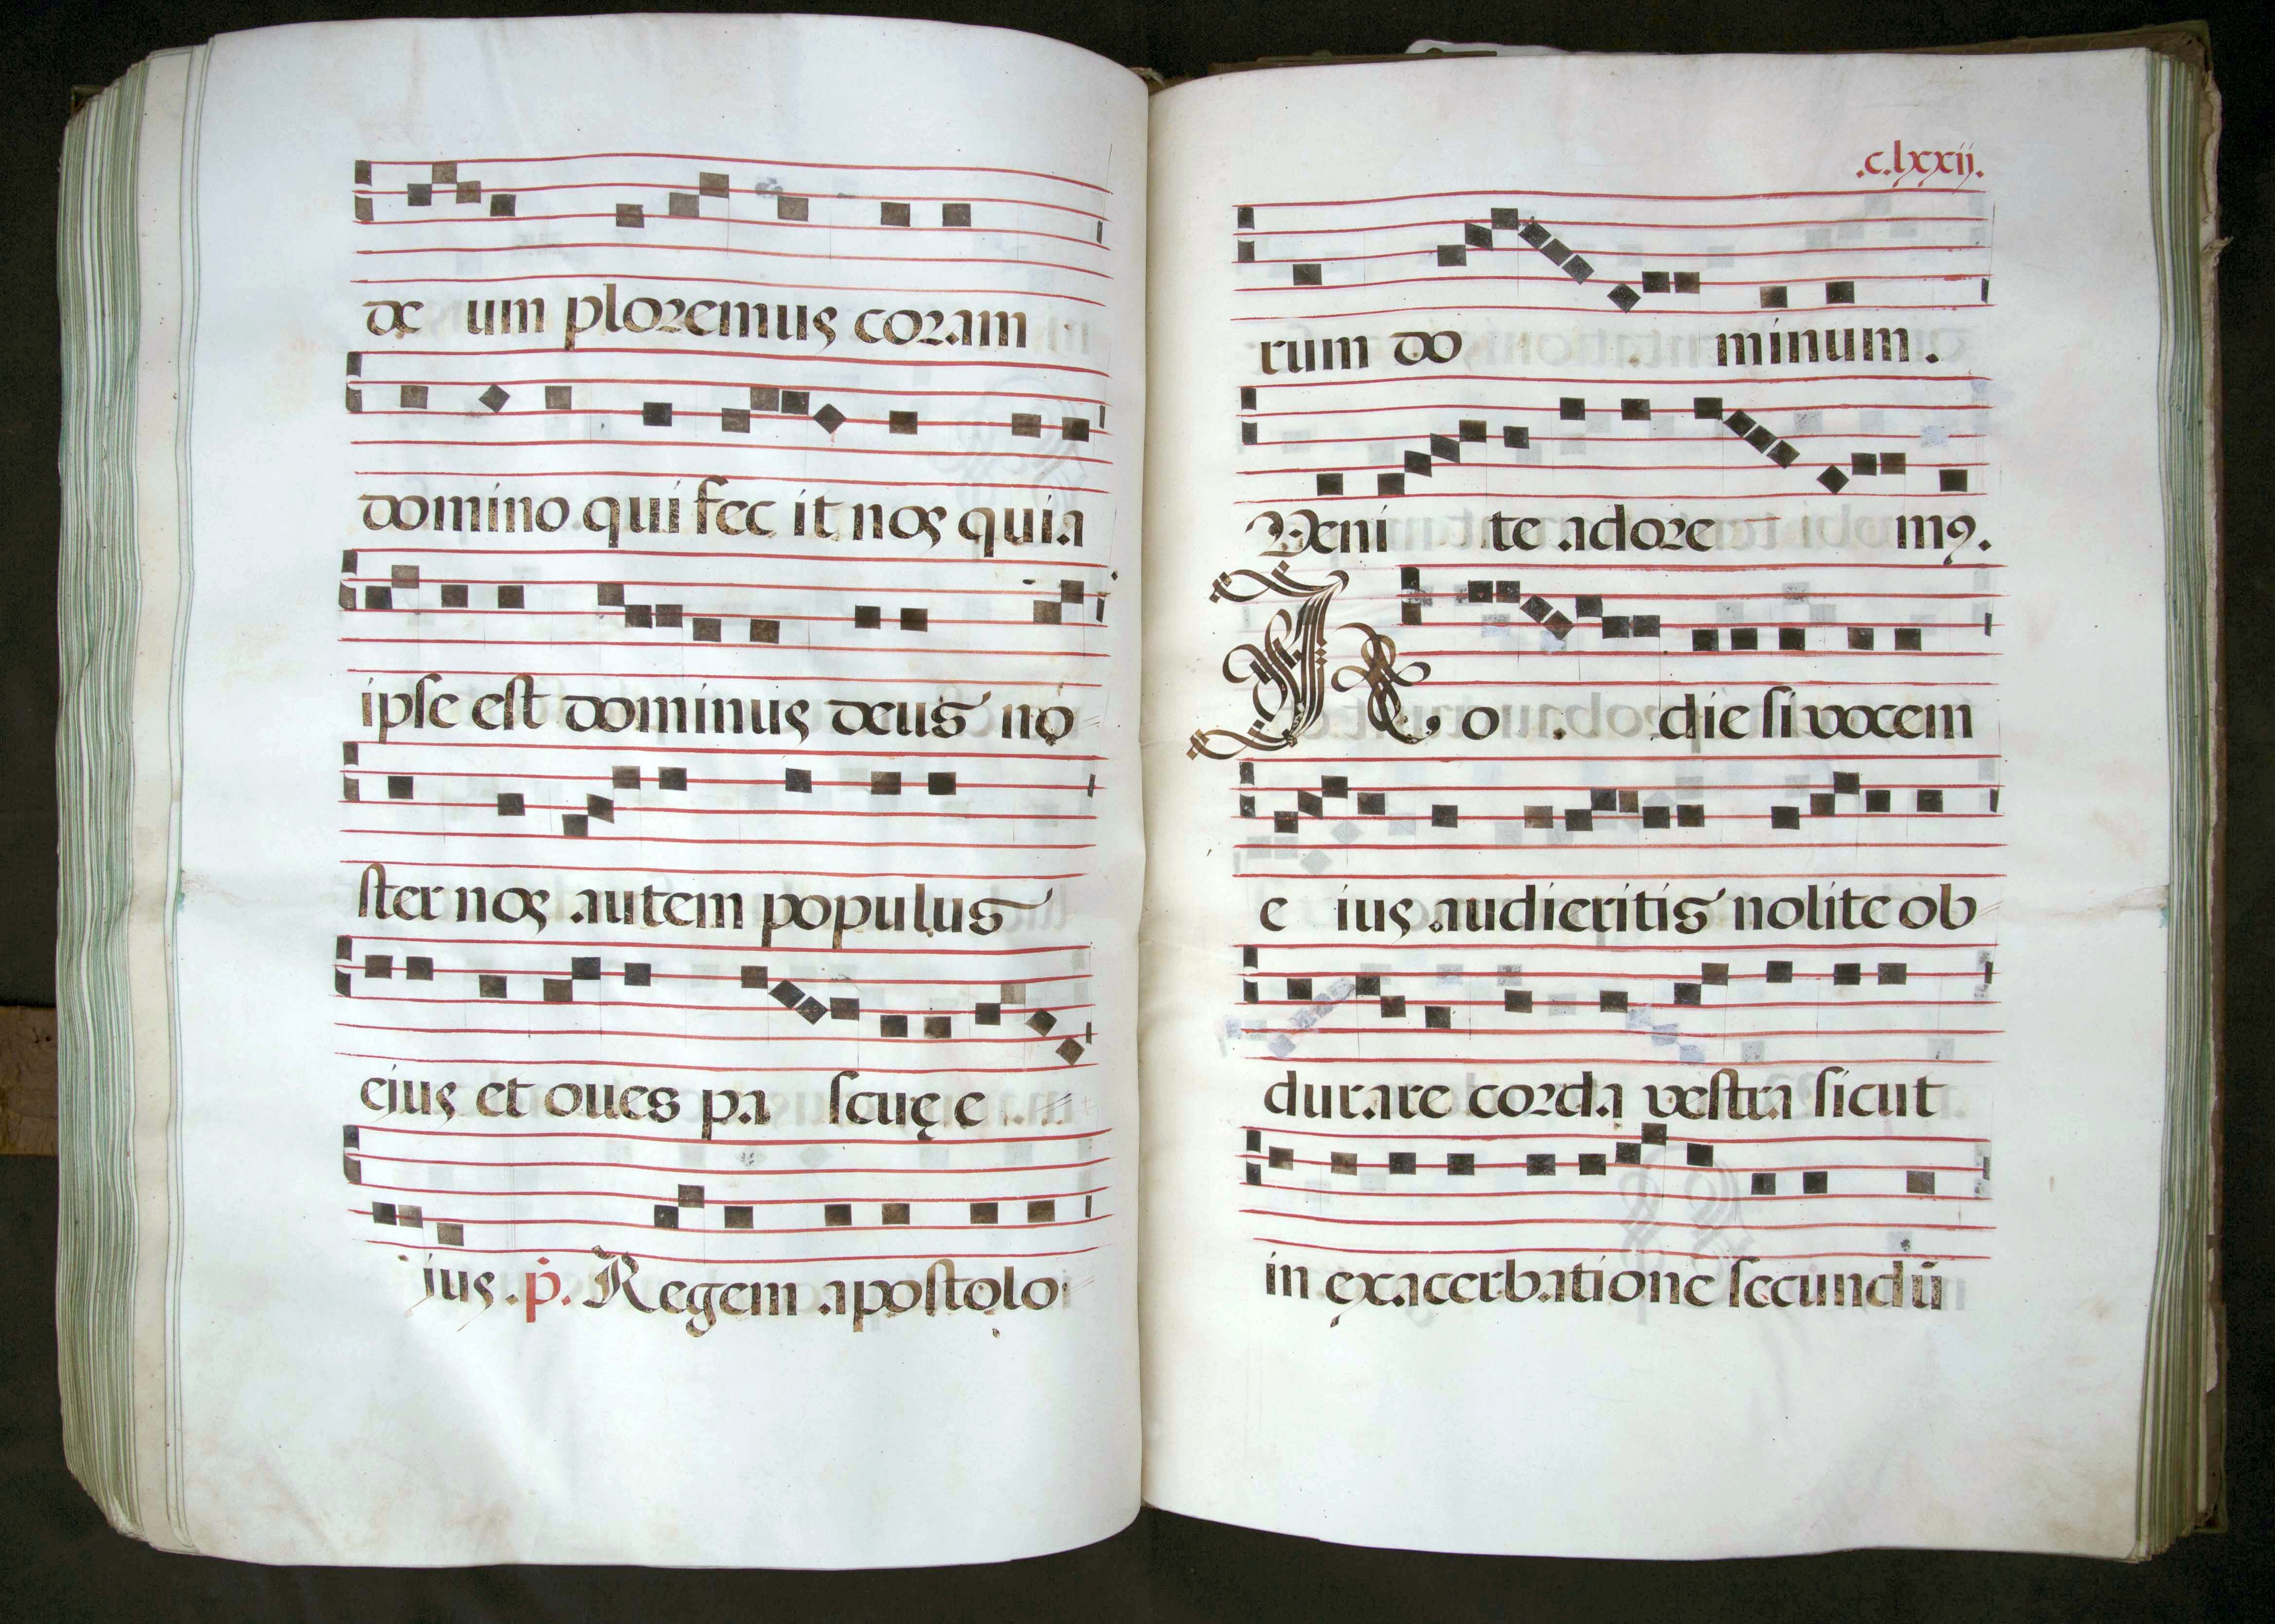 de um ploremus coram
domino qui fec it nos quia
ipse est dominus deus no
ster nos autem populus
ejus et oues pa scuę e
jus. p. Regem apostolo
.c.lxxij.
rum do minum.
Veni te adore m9.
Ho die si vocem
e ius audieritis nolite ob
durare corda vestra sicut
in exacerbatione secundū